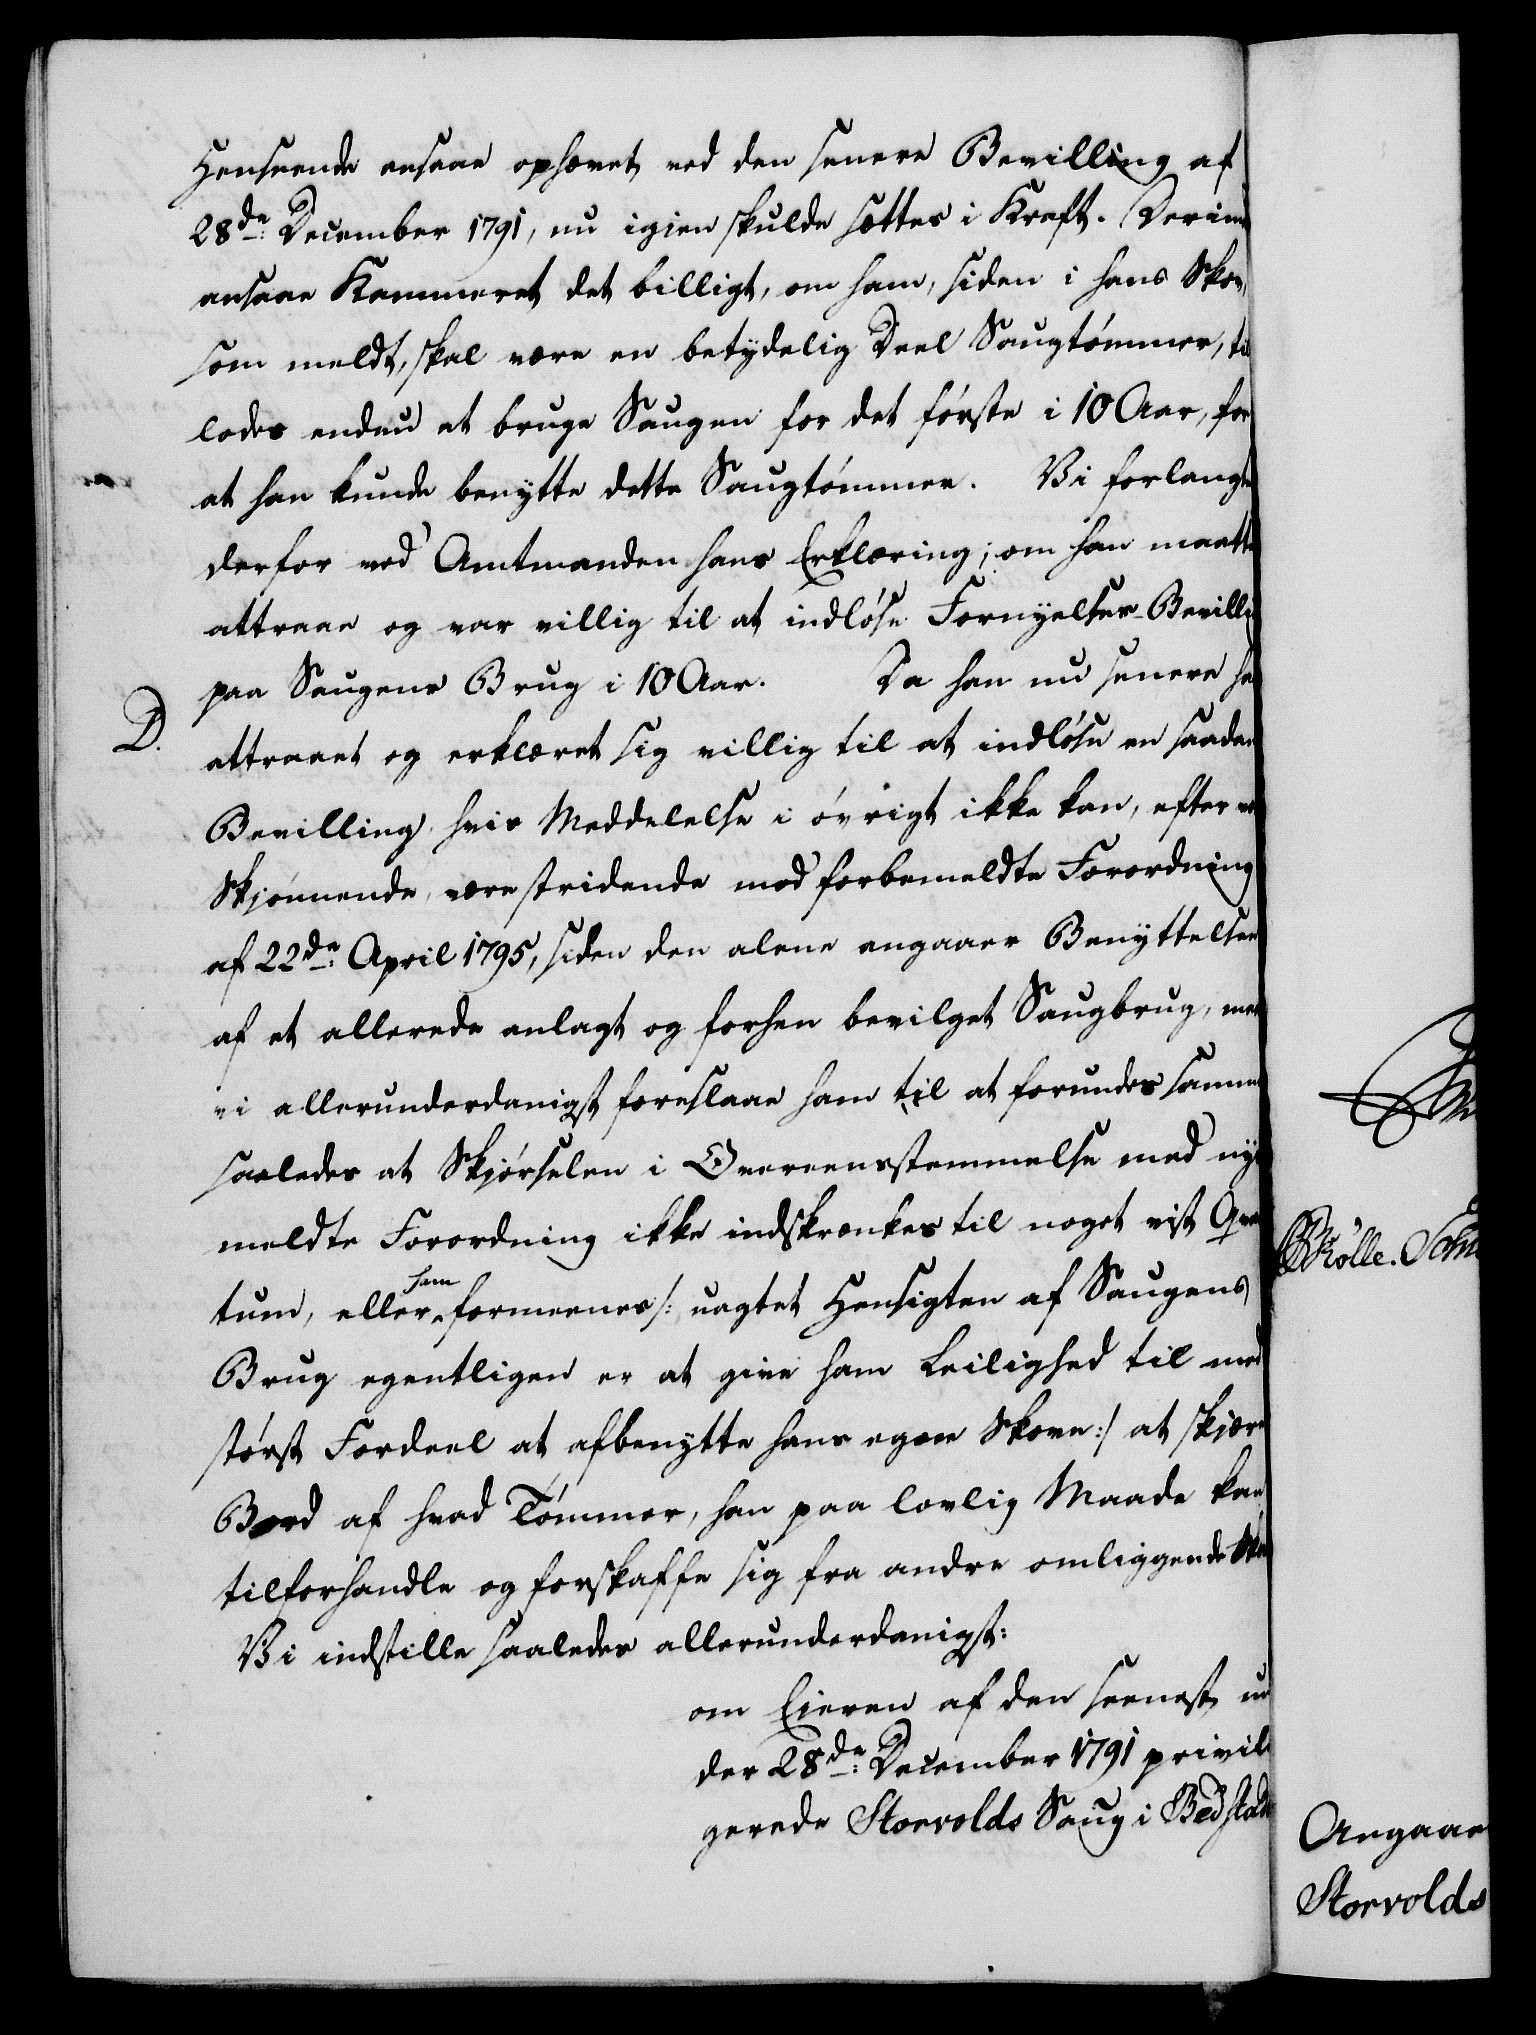 Henseende ansaae ophævet ved den senere Bevilling af
28de: December 1791, nu igien skulde sættes i Kraft. Derimo
ansaae Kammeret det billigt, om ham, siden i hans Skov,
som meldt, skal være en betydelig Deel Saugtømmer, til
lodes endnu at bruge Saugen for det første i 10 Aar, for
at han kunde benytte dette Saugtømmer. Vi forlangte
derfor ved Amtmanden hans Erklæring; om han maatte
attraae og var villig til at indløse Fornyelses-Bevilli
paa Saugens Brug i 10 Aar. Da han nu senere ha
D.
attraaet og erklæret sig villig til at indløse en saadan
Bevilling, hvis Meddelelse i øvrigt ikke kan, efter vo
Skjønnende, være stridende mod forbemeldte Forordning
af 22de: April 1795, siden den alene angaaer Benyttelsen
af et allerede anlagt og forhen bevilget Saugbrug, maa
vi allerunderdanigst foreslaae ham til at forundes samme
saaledes at Skjørselen i Overeensstemmelse med nys
meldte Forordning ikke indskrænkes til noget vist Qvan
tum, eller ham formeenes /: uagtet Hensigten af Saugens
Brug egentligen er at give ham Leilighed til med
størst Fordeel at afbenytte hans egne Skove :/ at skjære
Bord af hvad Tømmer, han paa lovlig Maade kan
tilforhandle og forskaffe sig fra andre omliggende Sko
Vi indstille saaledes allerunderdanigst:
om Eieren af den seenest un
der 28de: December 1791 privile
gerede Storvolds Saug i Bedstad
Kølle.
Angaae
Storvolds